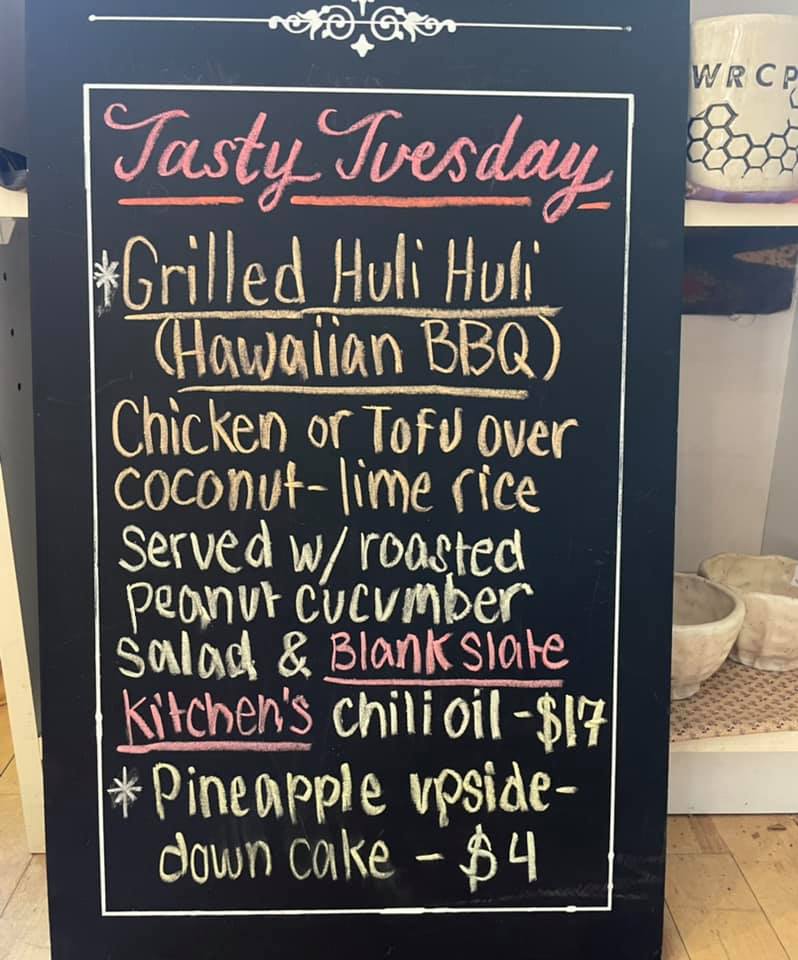 Tasty Tuesday
*Grilled Huli Huli
(Hawaiian BBQ)
Chicken or Tofu over
coconut-lime rice
Served w/ roasted
peanut cucumber
salad & Blank Slate
Kitchen's chili oil -$17
* Pineapple upside-
down cake - $4
WRCP